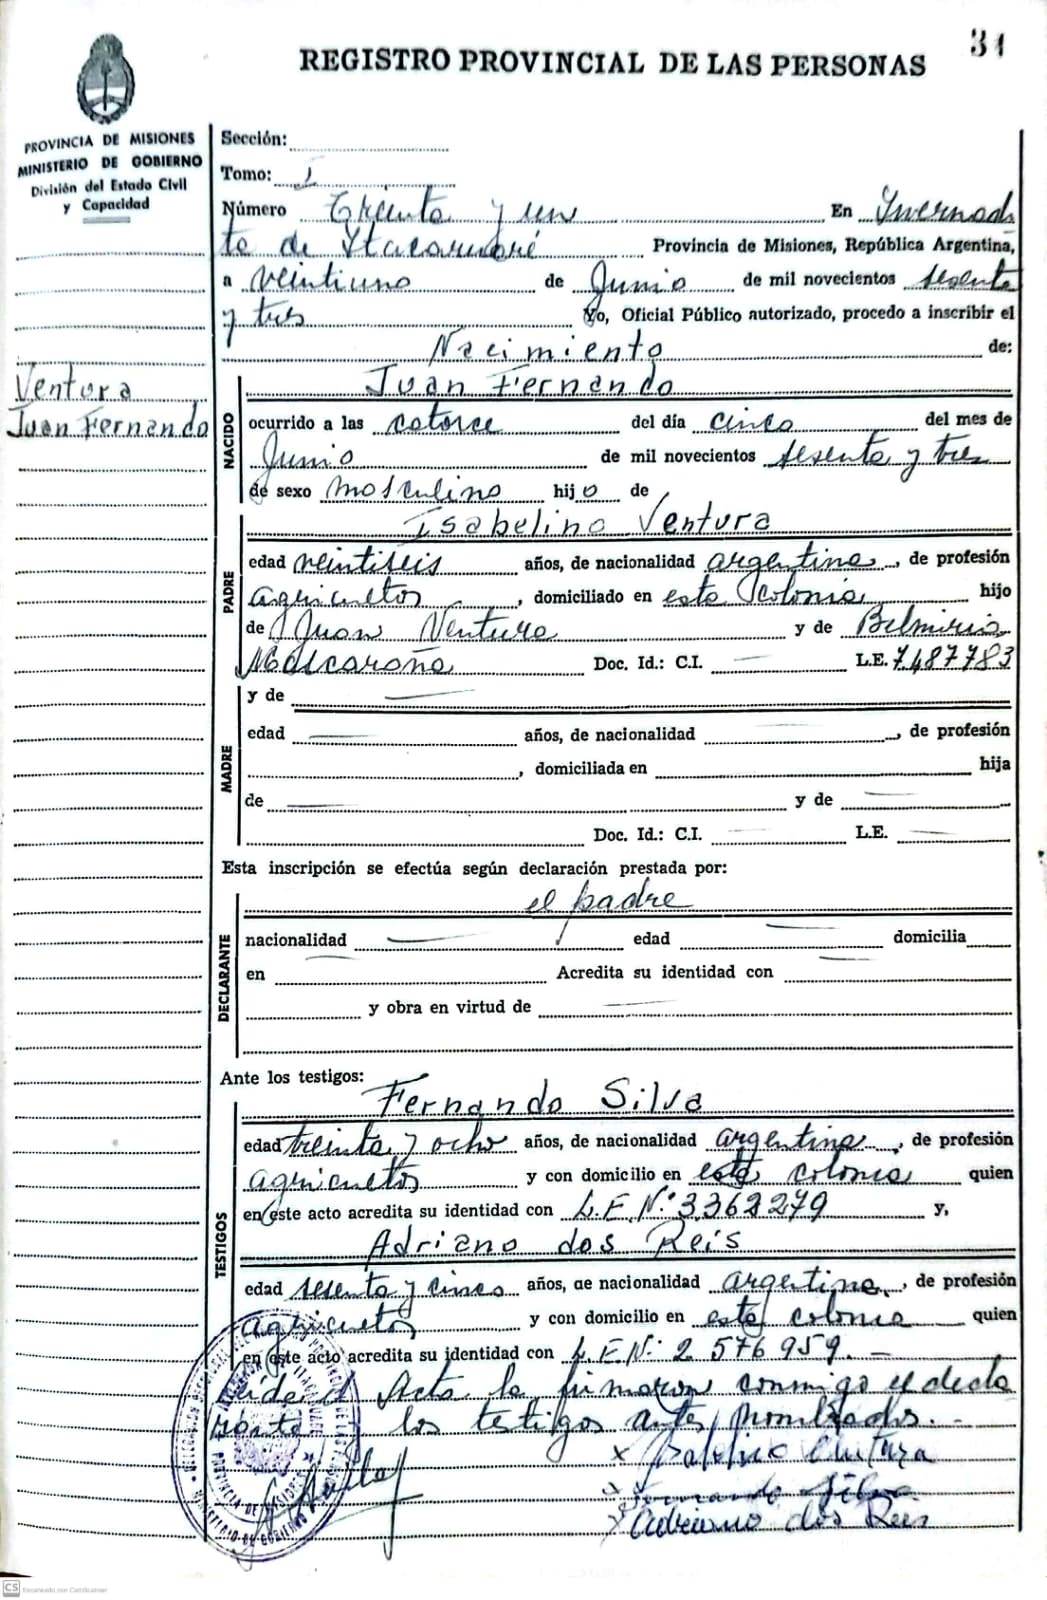 31
REGISTRO PROVINCIAL DE LAS PERSONAS
PROVINCIA DE MISIONES
MINISTERIO DE GOBIERNO
División del Estado Civil
y Capacidad
Sección:
Tomo: I
Número Treinta y un En Invernad
de Itacaruaré Provincia de Misiones, República Argentina,
a veintiuno de Junio de mil novecientos sesenta
y tres Yo, Oficial Público autorizado, procedo a inscribir el
Nacimiento de:
Ventura
Juan Fernando
NACIDO
Juan Fernando
ocurrido a las catorce del día cinco del mes de
Junio de mil novecientos sesenta y tres
de sexo masculino hijo de
Isabelino Ventura
PADRE
edad veintiseis años, de nacionalidad argentina, de profesión
agricultor, domiciliado en esta colonia hijo
de Juan Ventura y de Belmiria
Mascaroña Doc. Id.: C.I. — L.E. 7487783
y de —
MADRE
edad — años, de nacionalidad —, de profesión
, domiciliada en hija
de — y de —
Doc. Id.: C.I. — L.E. —
Esta inscripción se efectúa según declaración prestada por:
el padre
DECLARANTE
nacionalidad — edad — domicilia
en — Acredita su identidad con —
y obra en virtud de —
Ante los testigos:
TESTIGOS
Fernando Silva
edad treinta y ocho años, de nacionalidad argentina, de profesión
agricultor y con domicilio en esta colonia quien
en este acto acredita su identidad con L.E. Nº 3362279 y,
Adriano dos Reis
edad sesenta y cinco años, de nacionalidad argentina, de profesión
agricultor y con domicilio en esta colonia quien
en este acto acredita su identidad con L.E. Nº 2576959. —
Leida el Acta la firmaron conmigo el decla
rante y los testigos antes nombrados. —
x Isabelino Ventura
x Fernando Silva
x Adriano dos Reis
CS Escaneado con CamScanner